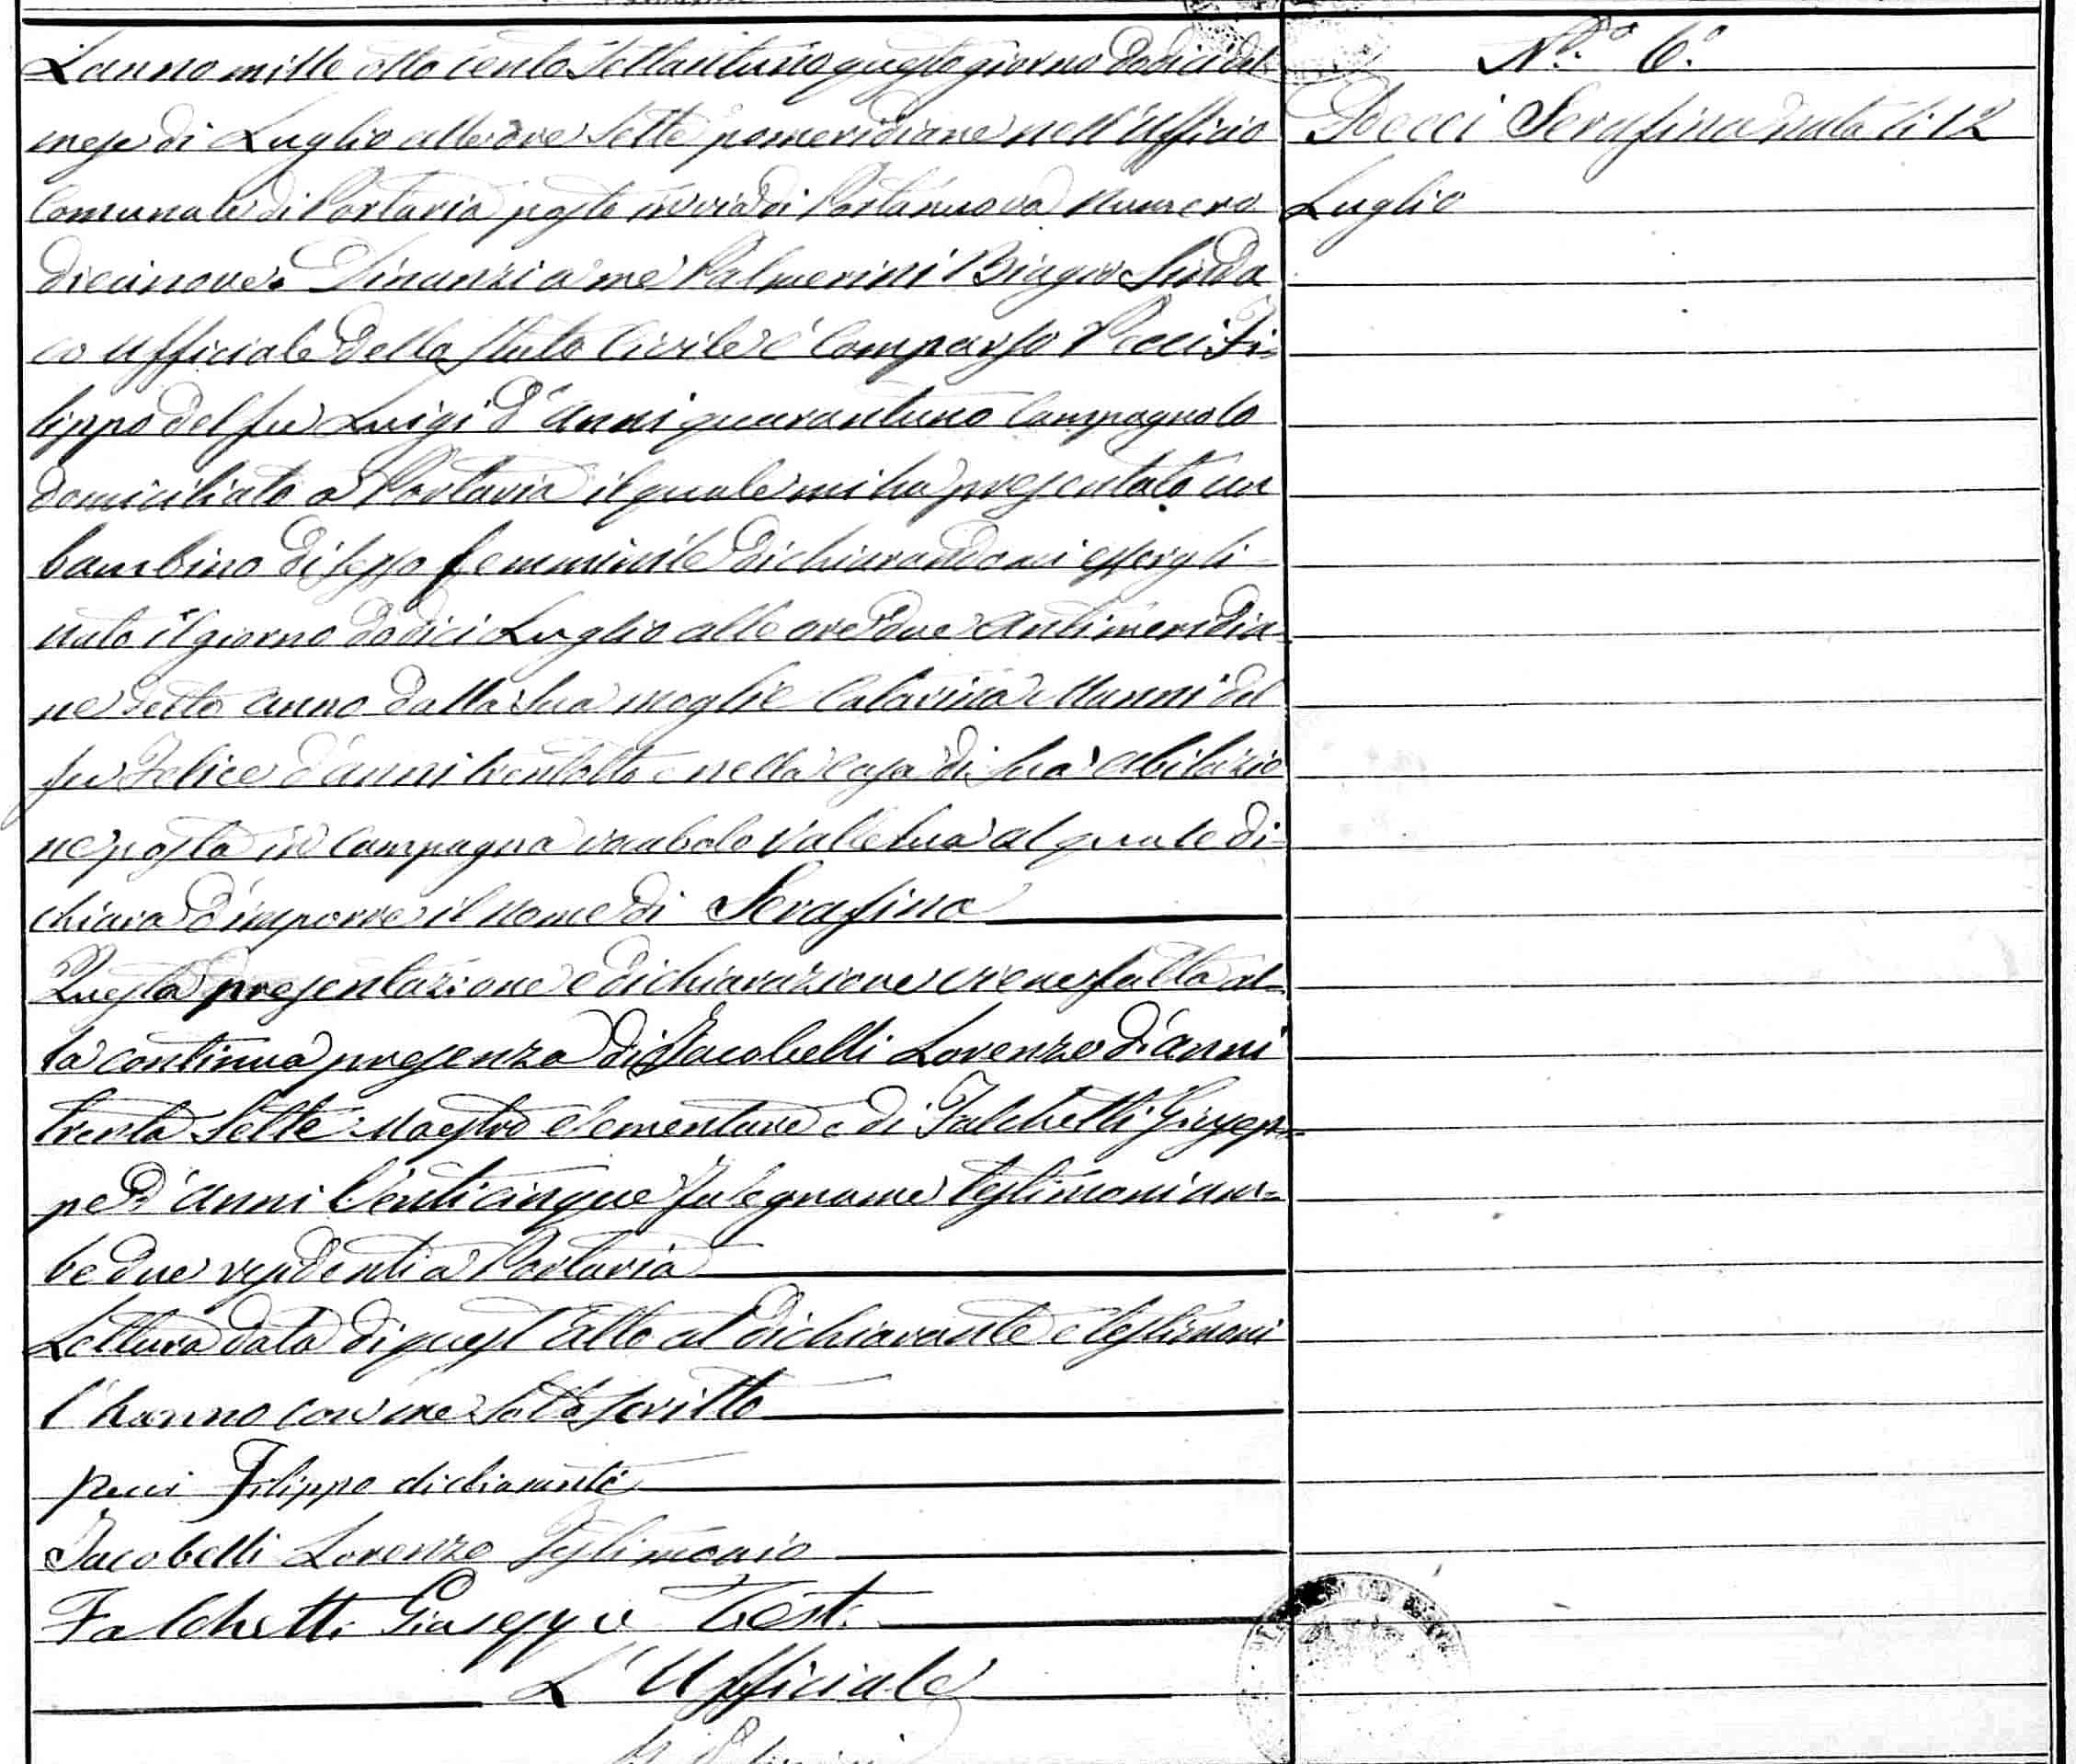 L'anno mille otto cento settantuno questo giorno dodici del
mese di Luglio alle ore sette pomeridiane nell'Ufficio
Comunale di Portaria posto in via di Portanuova Numero
diecinove. Dinanzi a me Palmerini Biagio Sinda
co Ufficiale dello Stato Civile è Comparso Pecci Fi-
lippo del fu Luigi d'anni quarantuno Campagnolo
domiciliato a Portaria il quale mi ha presentato un
bambino di sesso femminile dichiarandomi essergli
nato il giorno dodici Luglio alle ore due antimeridia-
ne detto anno dalla sua moglie Catarina Nanni del
fu Felice d'anni trentotto e nella casa di sua abitazio
ne posta in Campagna vocabolo Valle al quale di-
chiara d'imporre il nome di Serafina
Questa presentazione e dichiarazione viene fatta al-
la continua presenza di Jacobelli Lorenzo d'anni
trenta sette Maestro elementare e di Falchetti Giusep-
pe d'anni Venticinque Falegname testimoni am-
bedue residenti a Portaria
Lettura data di quest'atto al dichiarante e testimoni
l'hanno con me sottoscritto
Pecci Filippo dichiarante
Jacobelli Lorenzo Testimonio
Falchetti Giuseppe Test.
L'Ufficiale
N.° 6.°
Pecci Serafina nata li 12
Luglio